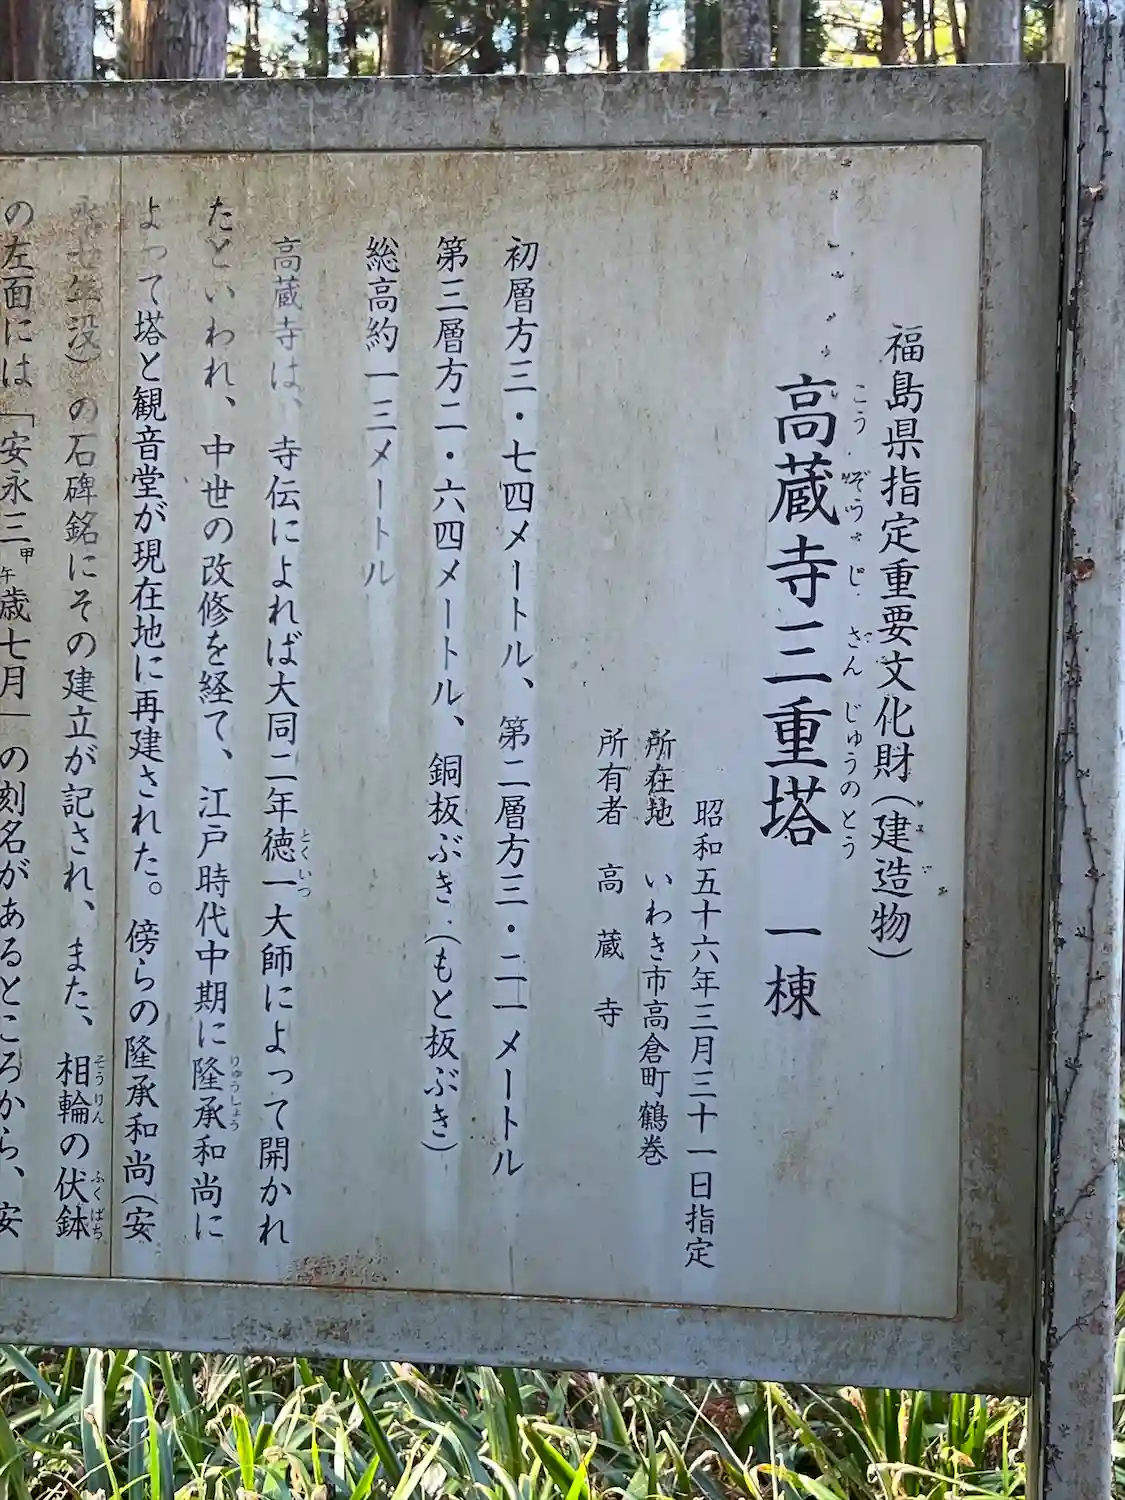 福島県指定重要文化財(建造物)
こうぞうじさんじゅうのとう
高蔵寺三重塔 一棟
昭和五十六年三月三十一日指定
所在地 いわき市高倉町鶴巻
所有者 高蔵寺
初層方三・七四メートル、第二層方三・二一メートル
第三層方二・六四メートル、銅板ぶき(もと板ぶき)
総高約一三メートル
高蔵寺は、寺伝によれば大同二年徳一大師によって開かれ
とくいつ
たといわれ、中世の改修を経て、江戸時代中期に隆承和尚に
りゅうしょう
よって塔と観音堂が現在地に再建された。傍らの隆承和尚(安
永七年没)の石碑銘にその建立が記され、また、相輪の伏鉢
そうりん ふくばち
の左面には「安永三甲午歳七月」の刻名があるところから、安